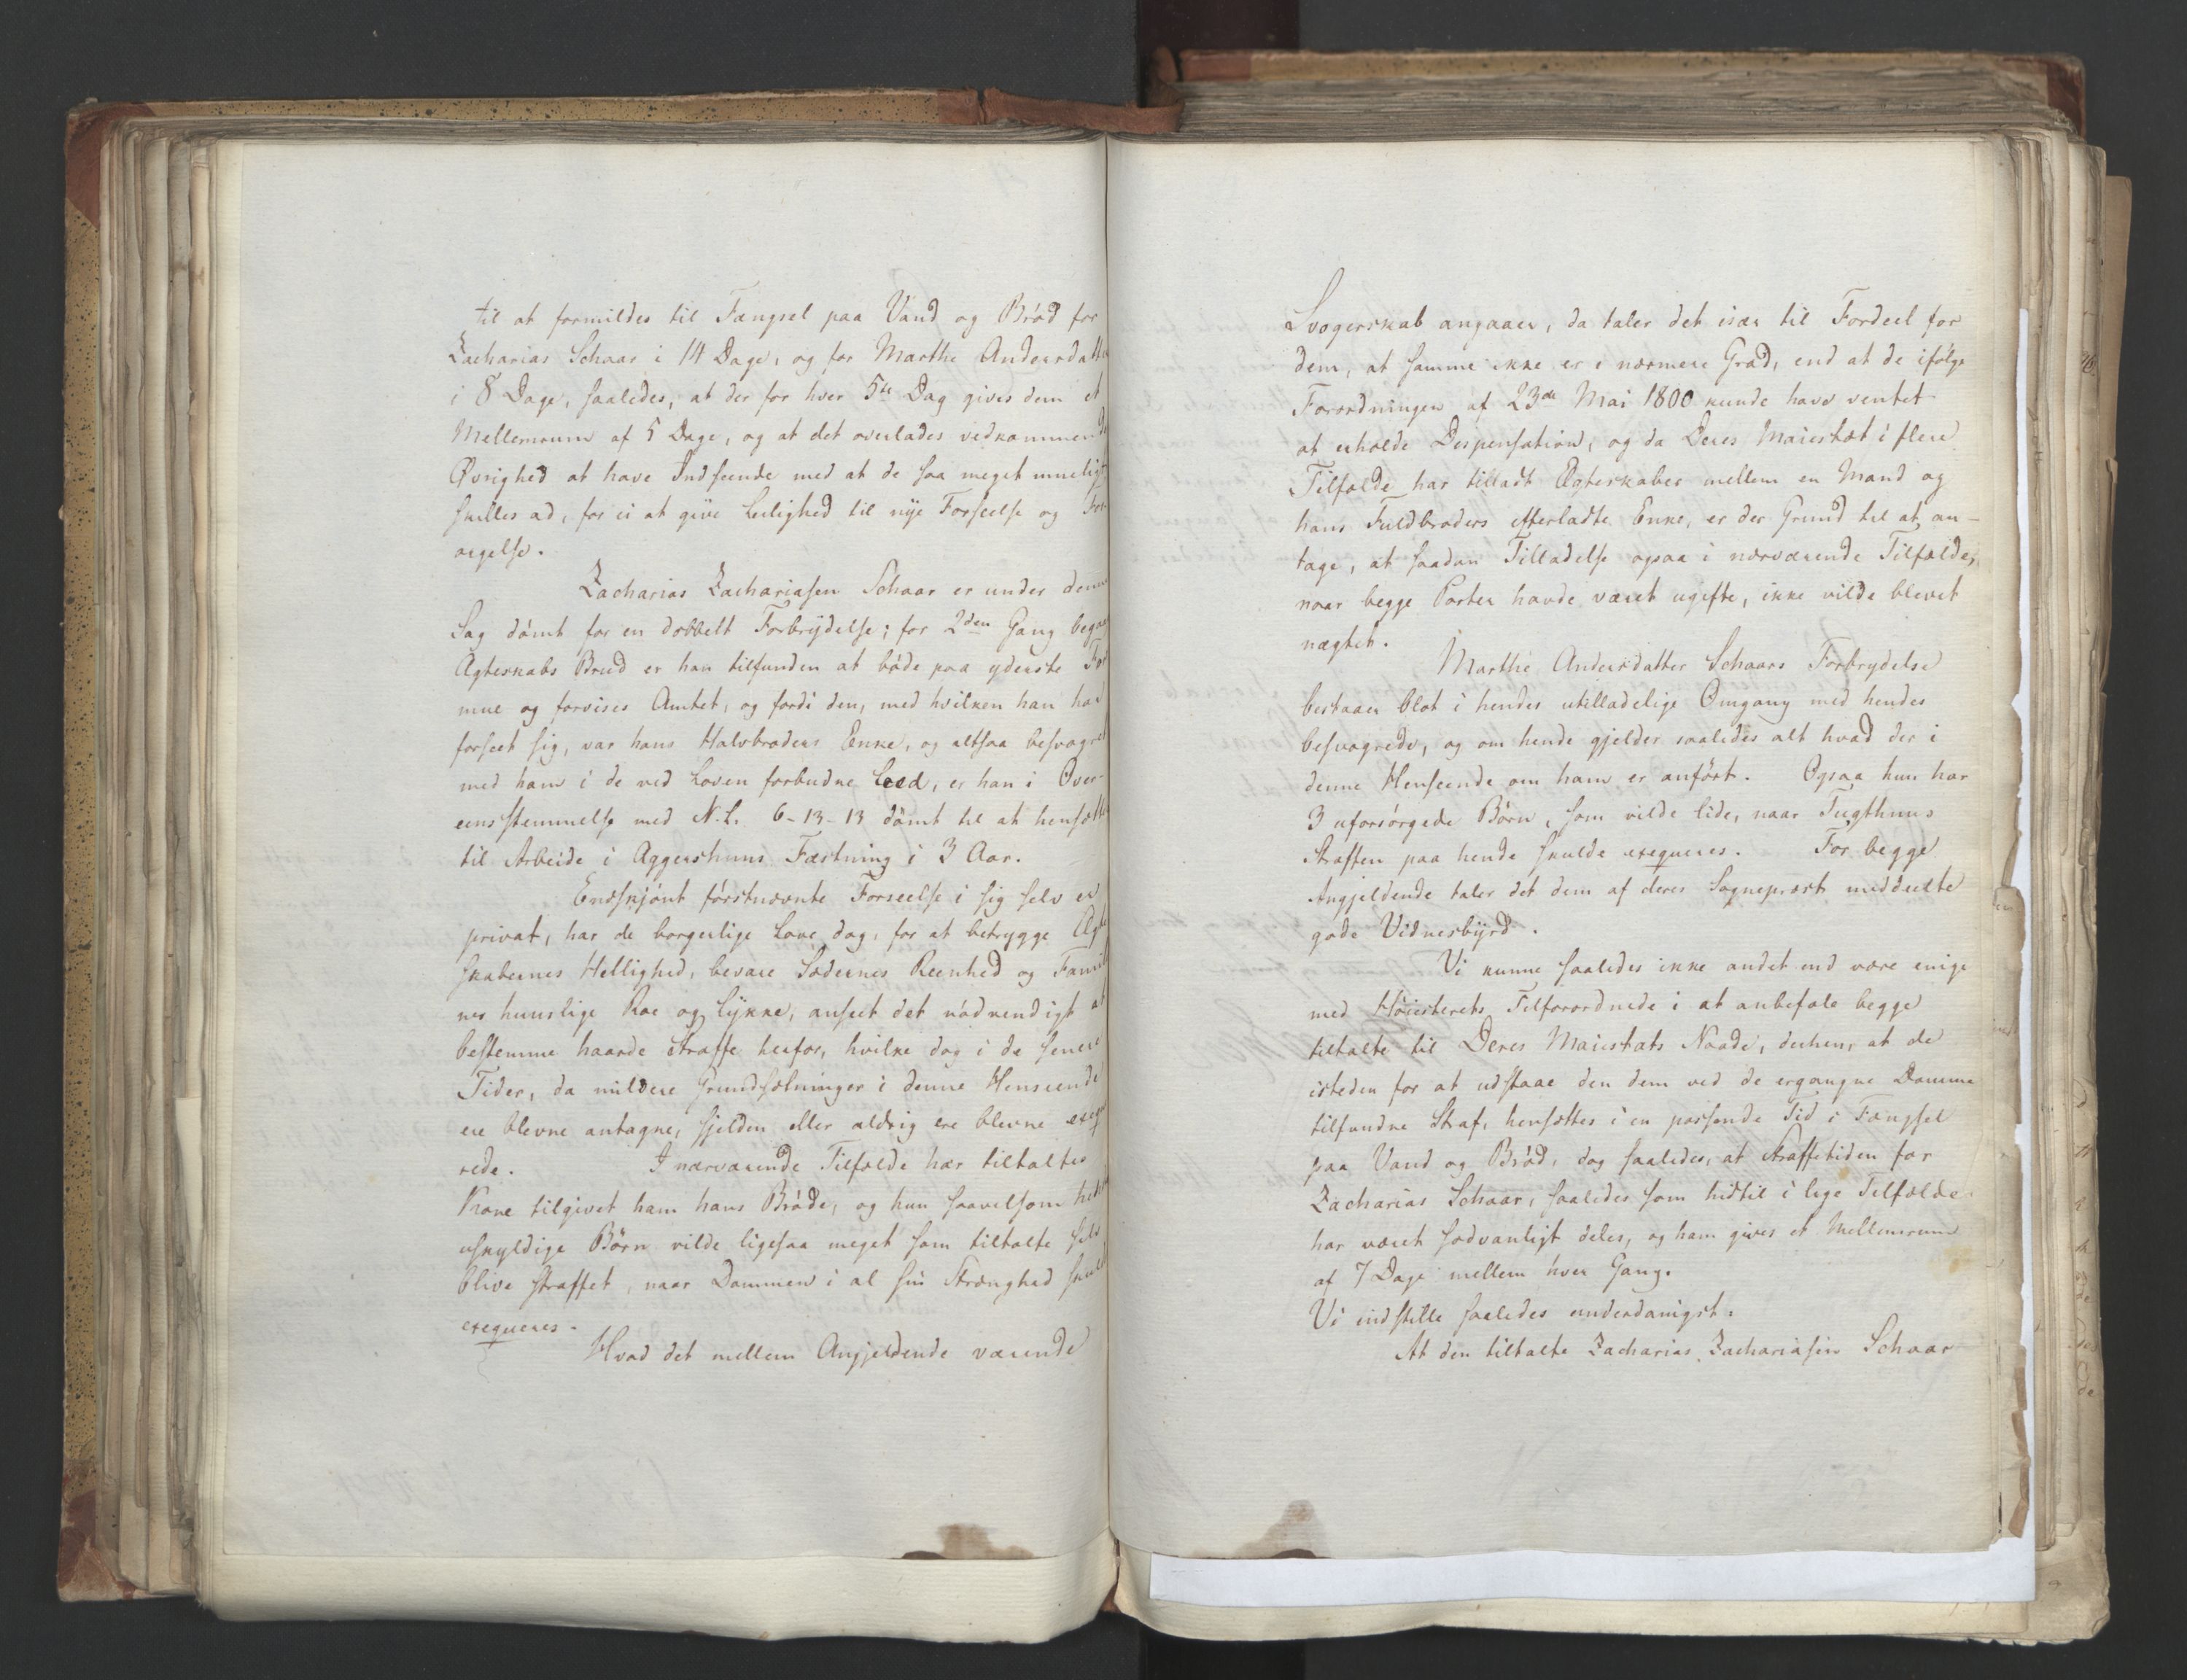 til at formildes til Fængsel paa Vand og Brød for
Zacharias Schaar i 14 Dage, og for Marthe Andersdatter
i 8 Dage, saaledes, at der for hver 5te Dag gives dem et
Mellemrum af 5 Dage, og at det overlades vedkommende
Øvrighed at have Indseende med at de saa meget mueligt
skilles ad, for ei at give Leilighed til nye Forseelse og For-
argelse.
Zacharias Zachariasen Schaar er under denne
Sag dömt for en dobbelt Forbrydelse; for 2den Gang begaaet
Ægteskabs Brud er han tilfunden at böde paa yderste For
mue og forvises Amtet, og fordi den, med hvilken han har
forseet sig, var hans Halvbroders Enke, og altsaa besvogret
med ham i de ved Loven forbudne Leed, er han i Over-
eensstemmelse med N. L. 6-13-13 dömt til at hensættes
til Arbeide i Aggershuus Fæstning i 3 Aar.
Endskjönt förstnævnte Forseelse i sig selv er
privat, har de borgerlige Love dog, for at betrygge Ægte
skabernes Hellighed, bevare Sædernes Reenhed og Famili
nes huuslige Roe og Lykke, anseet det nödvendigt at
bestemme haarde Straffe herfor, hvilke dog i de senere
Tider, da mildere Grundsætninger i denne Henseende
ere blevne antagne, sjelden eller aldrig ere blevne exeqve
rede. I nærværende Tilfælde har tiltaltes
Kone tilgivet ham hans Bröde, og hun saavelsom hendes
uskyldige Börn vilde ligesaa meget som tiltalte selv
blive straffet, naar Dommen i al sin Strænghed skulde
exequeres.
Hvad det mellem Angjeldende værende
Svogerskab angaaer, da taler det især til Fordeel for
dem, at samme ikke er i nærmere Grad, end at de ifölge
Forordningen af 23de Mai 1800 kunde have ventet
at erholde Dispensation, og da Deres Maiestæt i flere
Tilfælde har tilladt Ægteskaber mellem en Mand og
hans Fuldbroders efterladte Enke, er der Grund til at an-
tage, at saadan Tilladelse ogsaa i nærværende Tilfælde,
naar begge Parter havde været ugifte, ikke vilde blevet
nægtet.
Marthe Andersdatter Schaars Forbrydelse
bestaaer blot i hendes utilladelige Omgang med hendes
besvogrede, og om hende gjelder saaledes alt hvad der i
denne Henseende om ham er anfört. Ogsaa hun har
3 uforsörgede Börn, som vilde lide, naar Tugthuus
Straffen paa hende skulde exequeres. For begge
Angjeldende taler det dem af deres Sognepræst meddeelte
gode Vidnesbyrd.
Vi kunne saaledes ikke andet end være enige
med Höiesterets Tilforordnede i at anbefale begge
tiltalte til Deres Maiestæts Naade, derhen, at de
isteden for at udstaae den dem ved de ergangne Domme
tilfundne Straf, hensættes i en passende Tid i Fængsel
paa Vand og Bröd, dog saaledes, at Straffetiden for
Zacharias Schaar, saaledes som hidtil i lige Tilfælde
har været sædvanligt deles, og ham gives et Mellemrum
af 7 Dage mellem hver Gang.
Vi indstille saaledes underdanigst:
At den tiltalte Zacharias Zachariasen Schaar